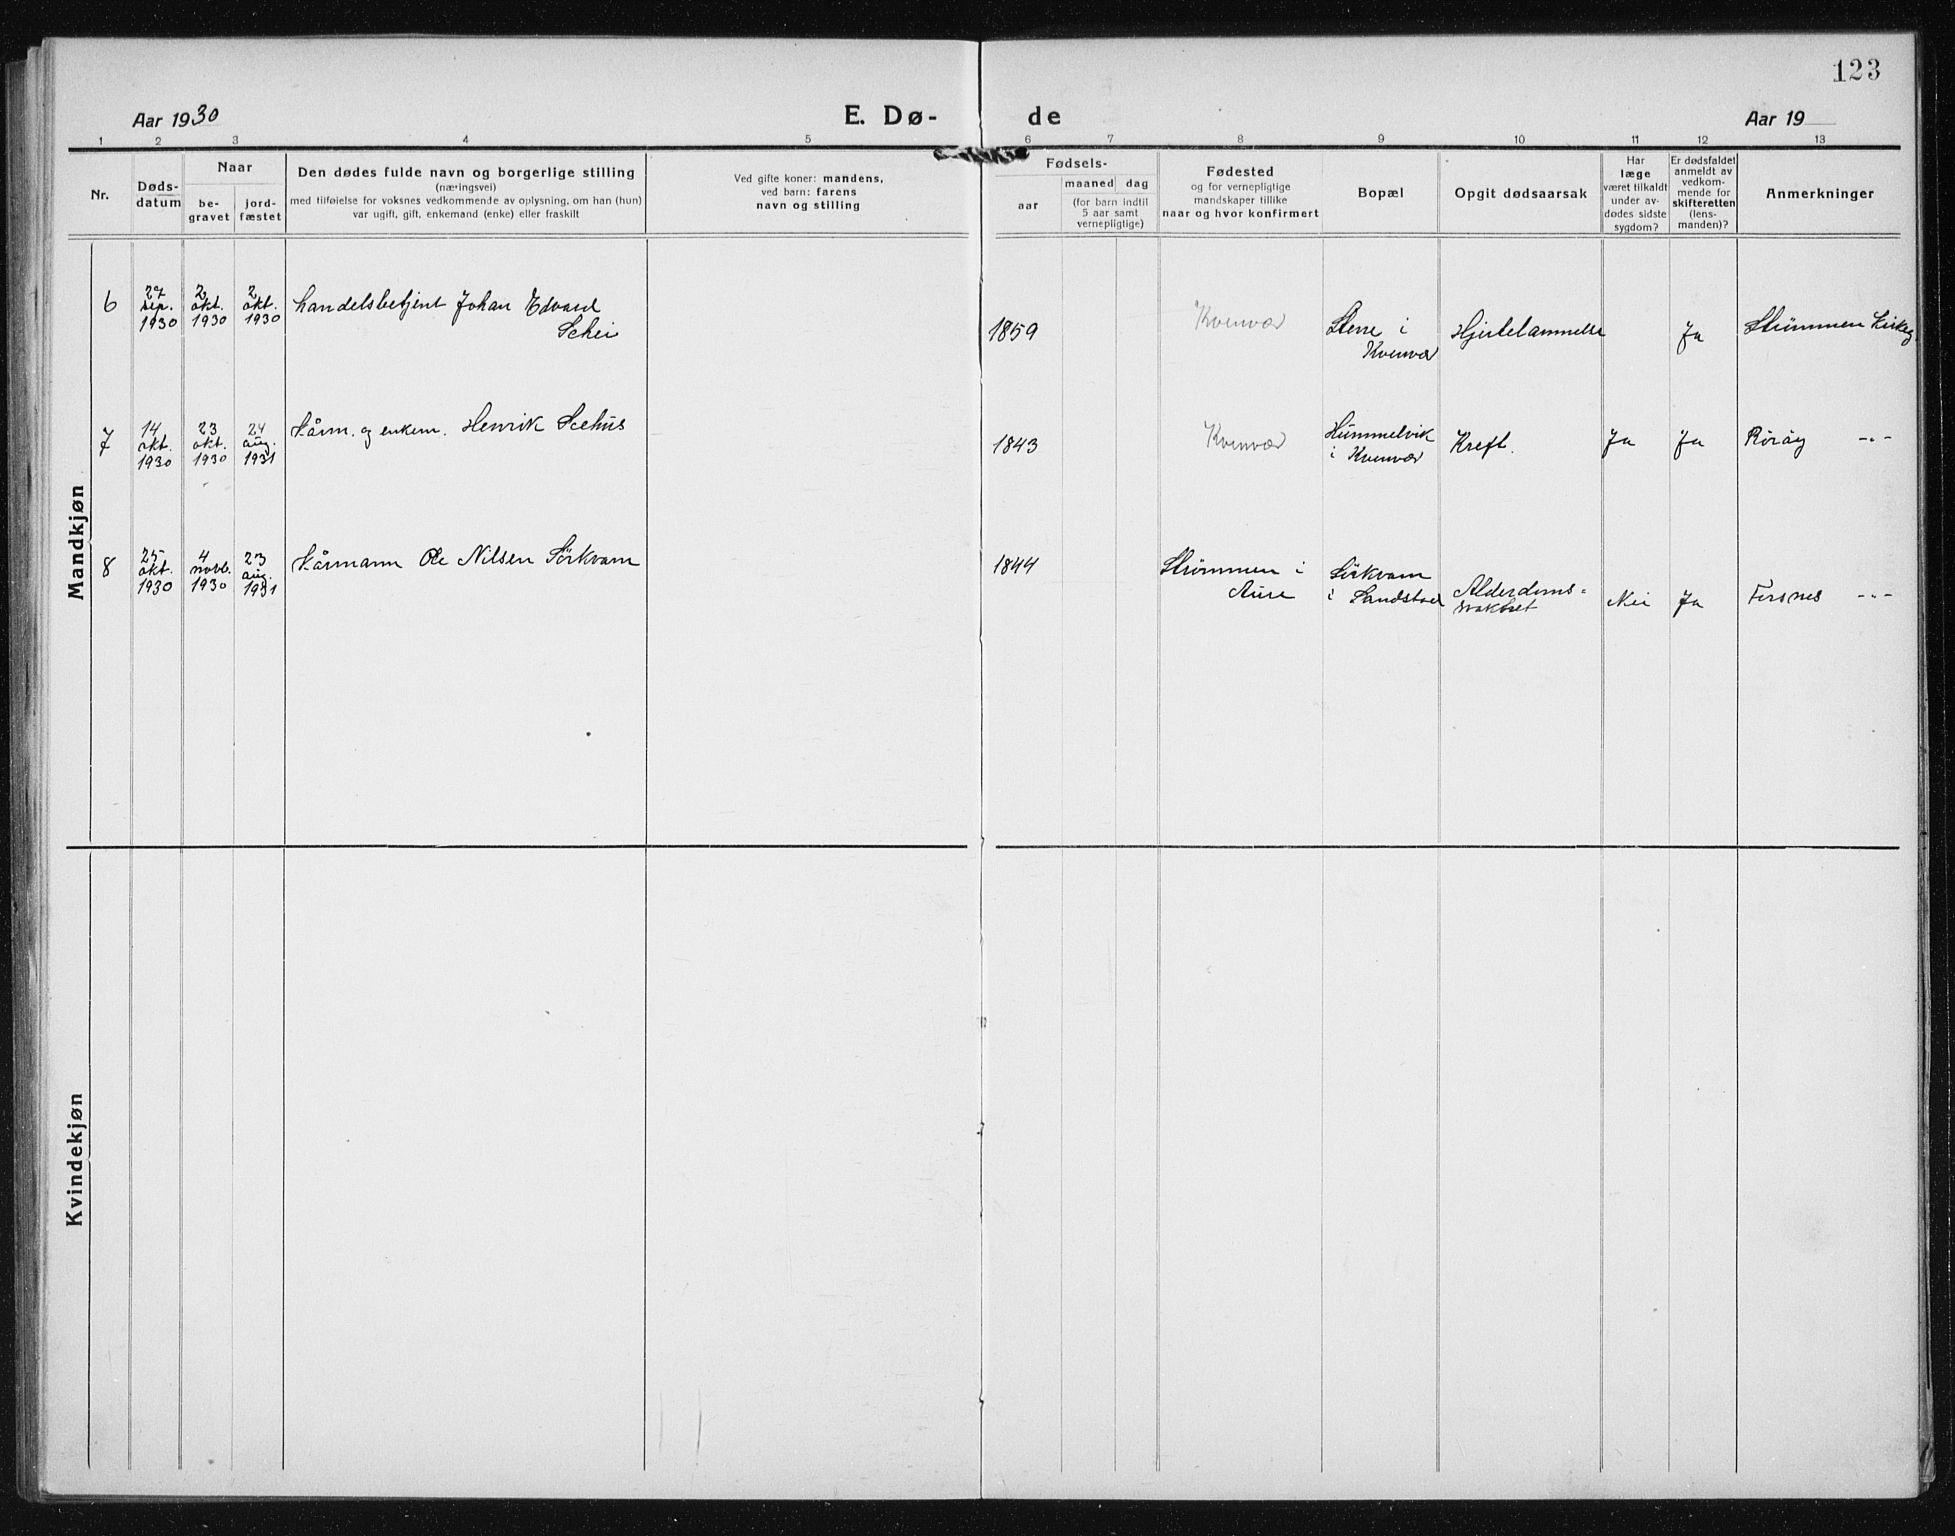 123
Aar 1930
E. Dø-
de
Aar 19
1 2 3 4 5 6 7 8 9 10 11 12 13
Nr.
Døds-
datum
Naar
be-
gravet
jord-
fæstet
Den dødes fulde navn og borgerlige stilling
(næringsvei)
med tilføielse for voksnes vedkommende av oplysning, om han (hun)
var ugift, gift, enkemand (enke) eller fraskilt
Ved gifte koner: mandens,
ved barn: farens
navn og stilling
Fødsels-
aar
maaned dag
(for barn indtil
5 aar samt
vernepligtige)
Fødested
og for vernepligtige
mandskaper tillike
naar og hvor konfirmert
Bopæl
Opgit dødsaarsak
Har
læge
været tilkaldt
under av-
dødes sidste
sygdom?
Er dødsfaldet
anmeldt av
vedkom-
mende for
skifteretten
(lens-
manden)?
Anmerkninger
Mandkjøn
6
27
sep.
1930
2
okt.
1930
2
okt.
1930
handelsbetjent Johan Edvard
Schei
1859
Kvenvær
Stene i
Kvenvær
Hjertelammelse
Ja
Strømmen kirkeg.
7
14
okt.
1930
23
okt.
1930
24
aug.
1931
Kårm. og enkem. Henrik Seehus
1843
Kvenvær
Hummelvik
i Kvenvær
Kreft.
Ja
Ja
-"-
8
25
okt.
1930
4
novb.
1930
23
aug.
1931
Kårmann Ole Nilsen Sørkvam
1844
Strømmen i
Aure
Sørkvam
i Sandstad
Alderdoms-
svakhet
Nei
Ja
Forsnes -"-
Kvindekjøn